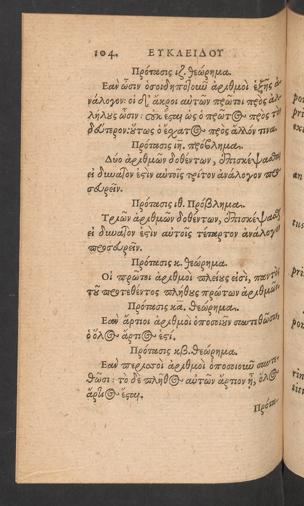 104. ΕΥΚΛΕΙΔΟΥ
Πρότασις ιζ. θεώρημα.
Εὰν ὦσιν ὁσοιδηποτοιοῦν ἀριθμοὶ ἑξῆς ἀ-
νάλογον: οἱ δὲ ἄκροι αὐτῶν πρῶτοι πρὸς ἀλ-
λήλους ὦσιν: οὐκ ἔσται ὡς ὁ πρῶτος πρὸς τὸν
δεύτερον: οὕτως ὁ ἔσχατος πρὸς ἄλλόν τινα.
Πρότασις ιη. πρόβλημα.
Δύο ἀριθμῶν δοθέντων, ἐπισκέψασθαι
εἰ δυνατόν ἐστιν αὐτοῖς τρίτον ἀνάλογον προ-
σευρεῖν.
Πρότασις ιθ. Πρόβλημα.
Τριῶν ἀριθμῶν δοθέντων, ἐπισκέψασθαι
εἰ δυνατόν ἐστιν αὐτοῖς τέταρτον ἀνάλογον
προσευρεῖν.
Πρότασις κ. θεώρημα.
Οἱ πρῶτοι ἀριθμοὶ πλείους εἰσὶ, παντὸς
τοῦ προτεθέντος πλήθους πρώτων ἀριθμῶν.
Πρότασις κα. θεώρημα.
Εὰν ἄρτιοι ἀριθμοὶ ὁποσοιοῦν συντεθῶσιν,
ὁ ὅλος ἄρτιός ἐστι.
Πρότασις κβ. θεώρημα.
Εὰν περισσοὶ ἀριθμοὶ ὁποσοιοῦν συντε-
θῶσι: τὸ δὲ πλῆθος αὐτῶν ἄρτιον ᾖ, ὁ ὅλος
ἄρτιος ἔσται.
Πρότα-